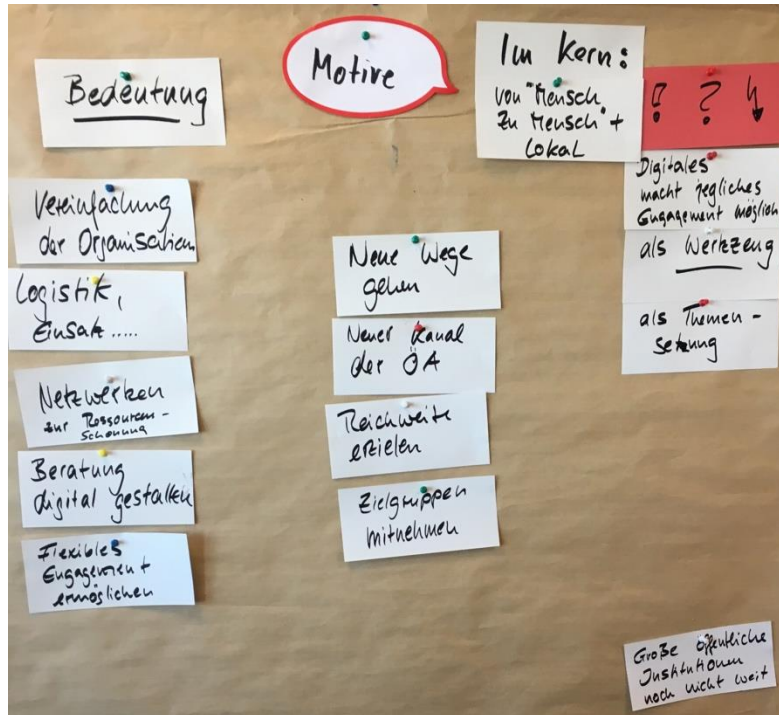 Bedeutung
Vereinfachung
der Organisation
Logistik,
Einsatz.....
Netzwerken
zur Ressourcen-
schonung
Beratung
digital gestalten
Flexibles
Engagement
ermöglichen
Motive
Neue Wege
gehen
Neuer Kanal
der ÖA
Reichweite
erzielen
Zielgruppen
mitnehmen
Im Kern:
von "Mensch
zu Mensch" +
Lokal
! ?
Digitales
macht jegliches
Engagement möglich
als Werkzeug
als Themen-
setzung
Große öffentliche
Institutionen
noch nicht weit